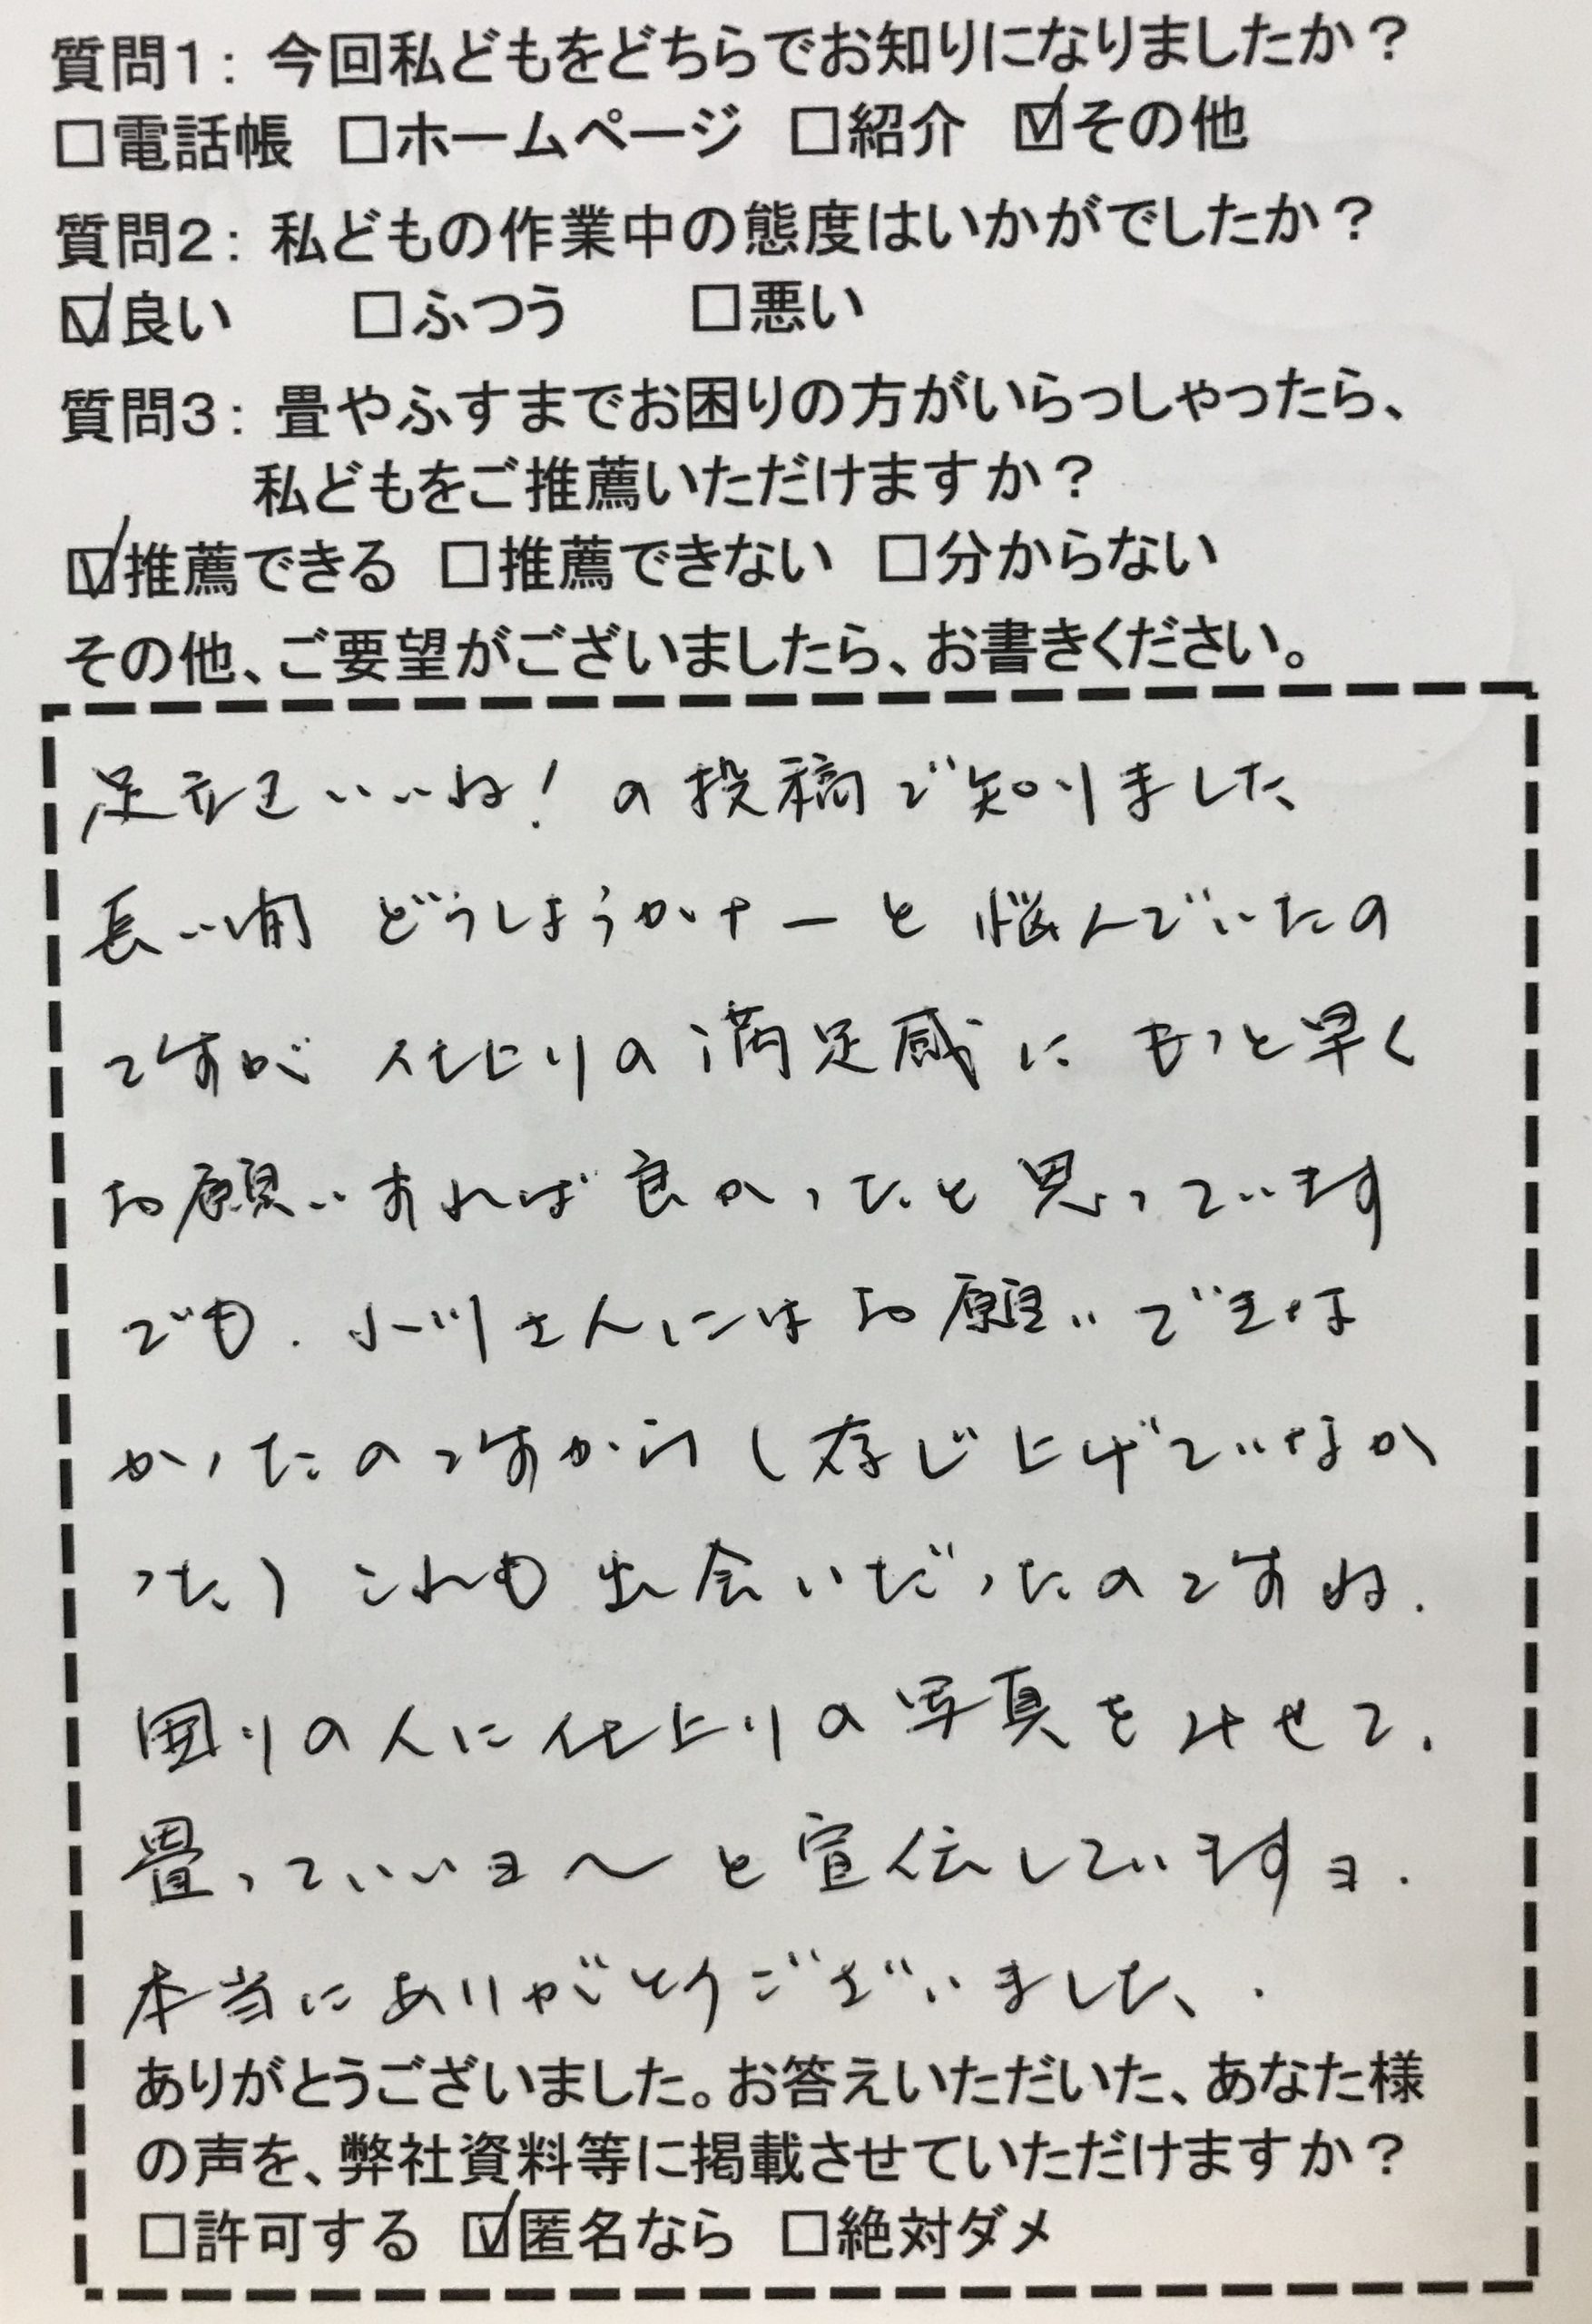 質問1：今回私どもをどちらでお知りになりましたか？
□電話帳 □ホームページ □紹介 ☑その他
質問2：私どもの作業中の態度はいかがでしたか？
☑良い □ふつう □悪い
質問3：畳やふすまでお困りの方がいらっしゃったら、
私どもをご推薦いただけますか？
☑推薦できる □推薦できない □分からない
その他、ご要望がございましたら、お書きください。
足立区いいね！の投稿で知りました
長い間 どうしようかナーと悩んでいたの
ですが 仕上りの満足感に もっと早く
お願いすれば良かったと思っています
でも.小川さんにはお願いできな
かったのですから(存じ上げていなか
った)これも出会いだったのですね.
囲りの人に仕上りの写真をみせて.
畳っていいヨ〜と宣伝していますヨ.
本当にありがとうございました.
ありがとうございました。お答えいただいた、あなた様
の声を、弊社資料等に掲載させていただけますか？
□許可する ☑匿名なら □絶対ダメ